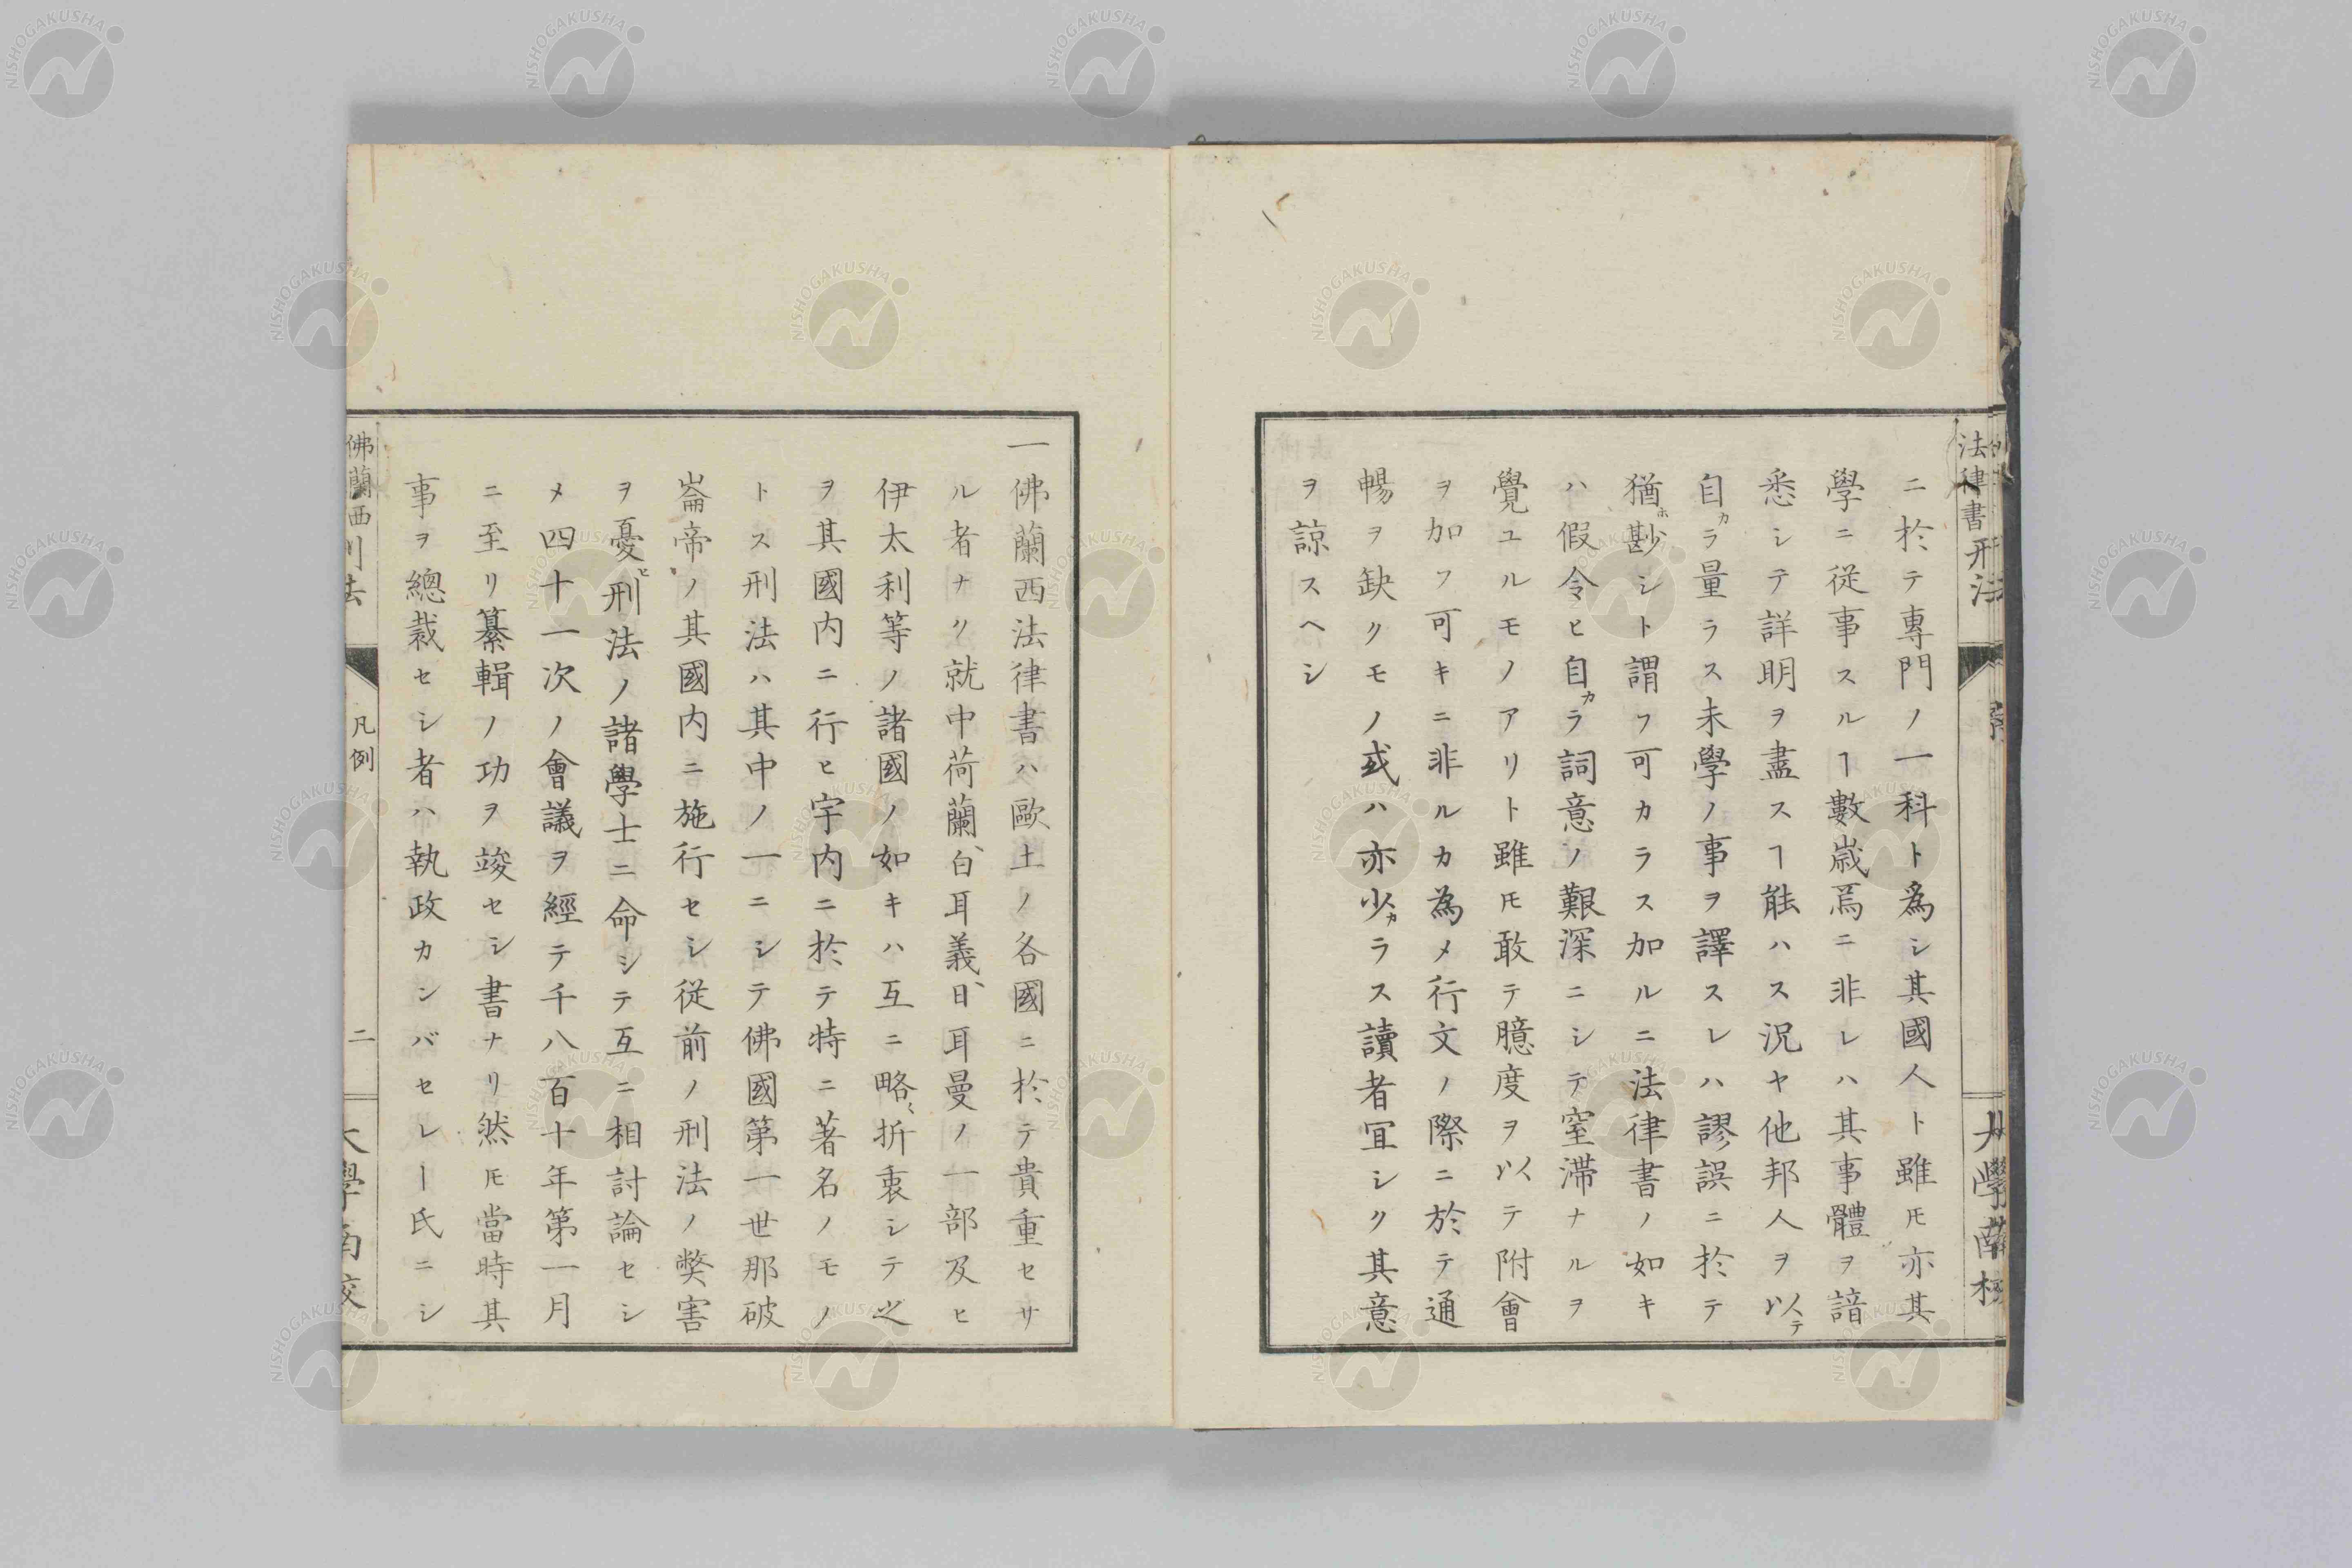 ニ於テ專門ノ一科ト爲シ其國人ト雖𪜈亦其
學ニ從事スルヿ數歳焉ニ非レハ其事體ヲ諳
悉シテ詳明ヲ盡スヿ能ハス況ヤ他邦人ヲ以テ
自カラ量ラス未學ノ事ヲ譯スレハ謬誤ニ於テ
猶ホ尠シト謂フ可カラス加ルニ法律書ノ如キ
ハ假令ヒ自カラ詞意ノ艱深ニシテ窒滯ナルヲ
覺ユルモノアリト雖𪜈敢テ臆度ヲ以テ附會
ヲ加フ可キニ非ルカ為メ行文ノ際ニ於テ通
暢ヲ缺クモノ或ハ亦少カラス讀者宜シク其意
ヲ諒スヘシ
一佛蘭西法律書ハ歐土ノ各國ニ於テ貴重セサ
ル者ナク就中荷蘭、白耳義、日耳曼ノ一部及ヒ
伊太利等ノ諸國ノ如キハ互ニ略〻折衷シテ之
ヲ其國内ニ行ヒ宇内ニ於テ特ニ著名ノモノ
トス刑法ハ其中ノ一ニシテ佛國第一世那破
崙帝ノ其國内ニ施行セシ從前ノ刑法ノ弊害
ヲ憂ヒ刑法ノ諸學士ニ命シテ互ニ相討論セシ
メ四十一次ノ會議ヲ經テ千八百十年第一月
ニ至リ纂輯ノ功ヲ竣セシ書ナリ然𪜈當時其
事ヲ總裁セシ者ハ執政カンバセレー氏ニシ
佛蘭西刑法
凡例
二
大學南校
法律書刑法
大學南校
NISHOGAKUSHA